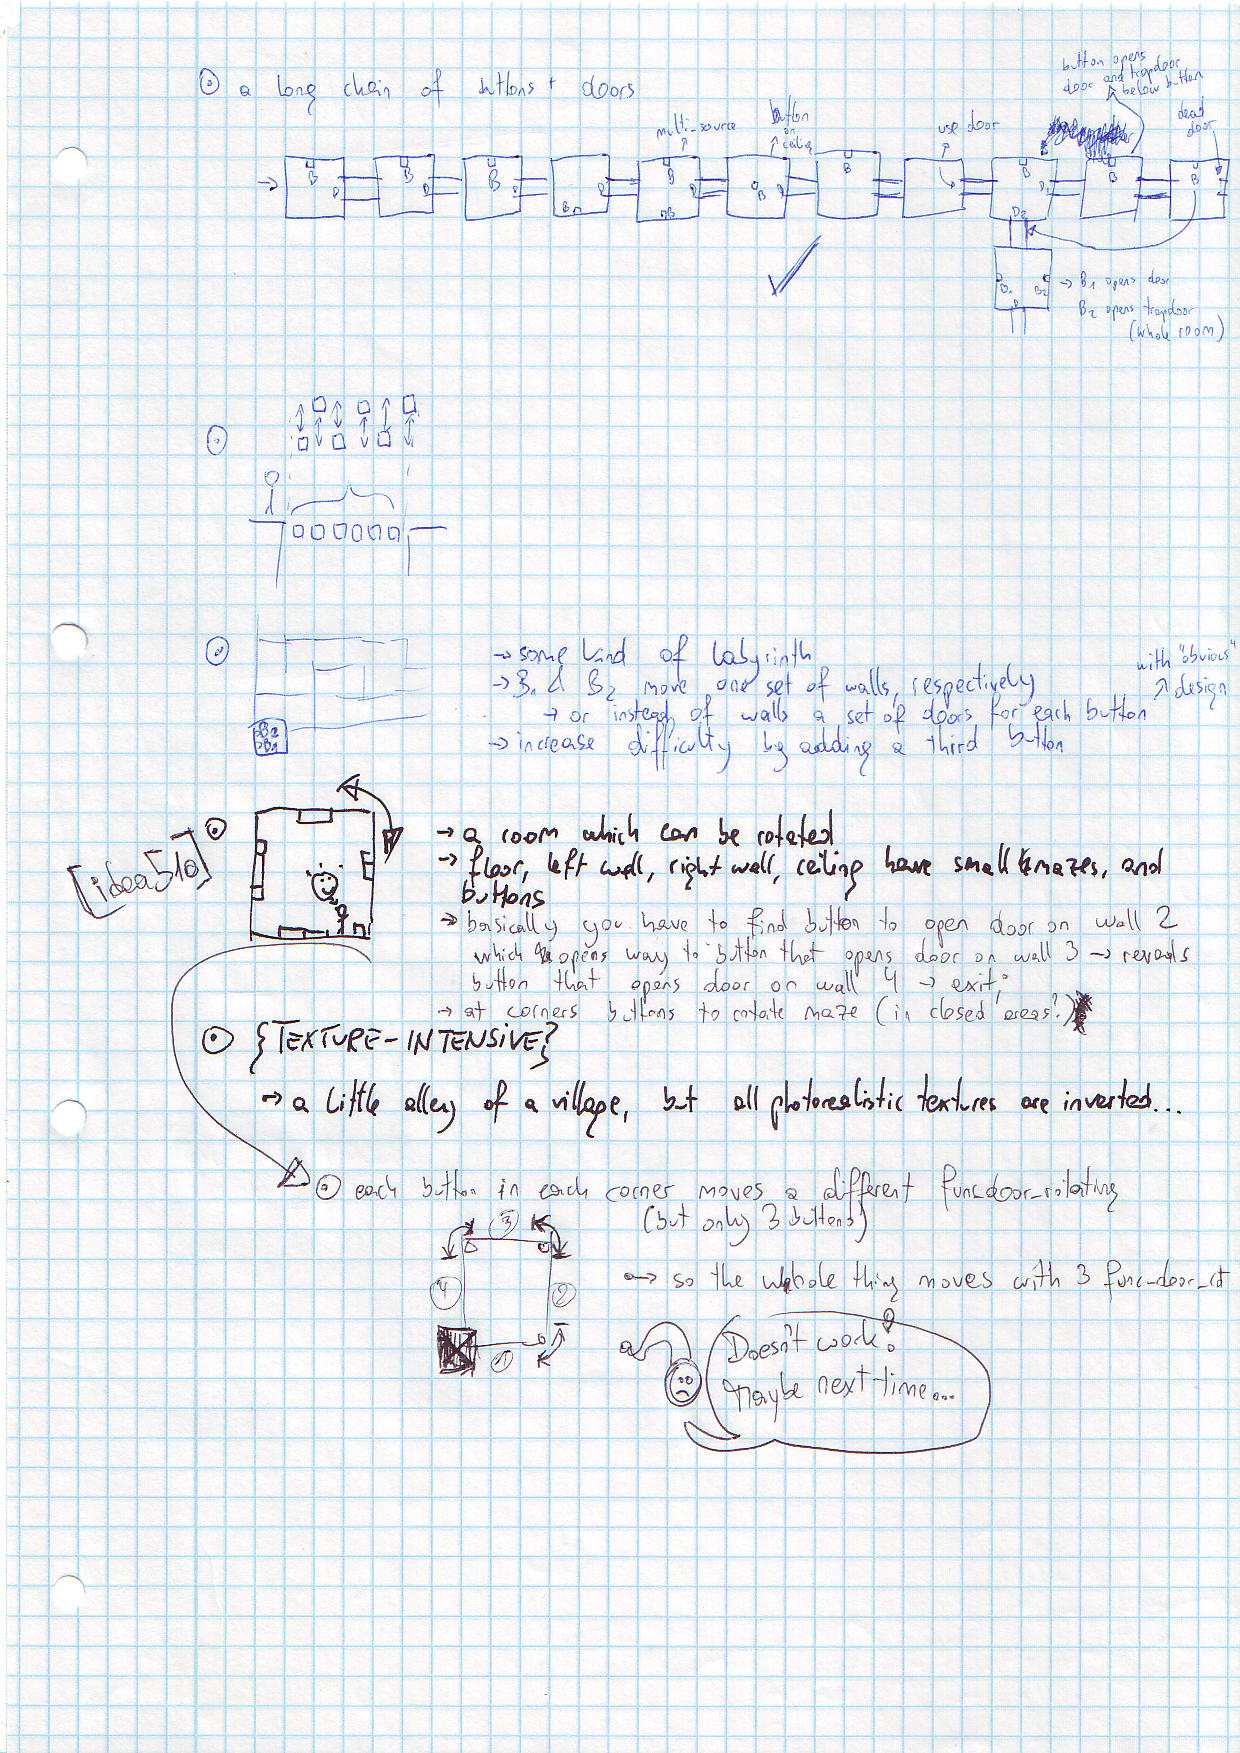 a long chain of buttons + doors
button opens
door and trapdoor
below button
multi-source
button
on
ceiling
use door
dead
door
B B B B B B B B B B
D D D D D D D1
B1
D2
B1 B2
D
→ B1 opens door
B2 opens trapdoor
(whole room)
→ some kind of labyrinth
→ B1 & B2 move one set of walls, respectively
→ or instead of walls a set of doors for each button
→ increase difficulty by adding a third button
with "obvious"
design
B2
B1
[idea510]
→ a room which can be rotated
→ floor, left wall, right wall, ceiling have small mazes, and
buttons
→ basically you have to find button to open door on wall 2
which opens way to button that opens door on wall 3 → reveals
button that opens door on wall 4 → exit;
→ at corners buttons to rotate maze (in closed areas?)
{TEXTURE-INTENSIVE?}
→ a little alley of a village, but all photorealistic textures are inverted...
each button in each corner moves a different func_door_rotating
(but only 3 buttons)
3
4 2
1
→ so the whole thing moves with 3 func_door_rot
Doesn't work!
Maybe next time...